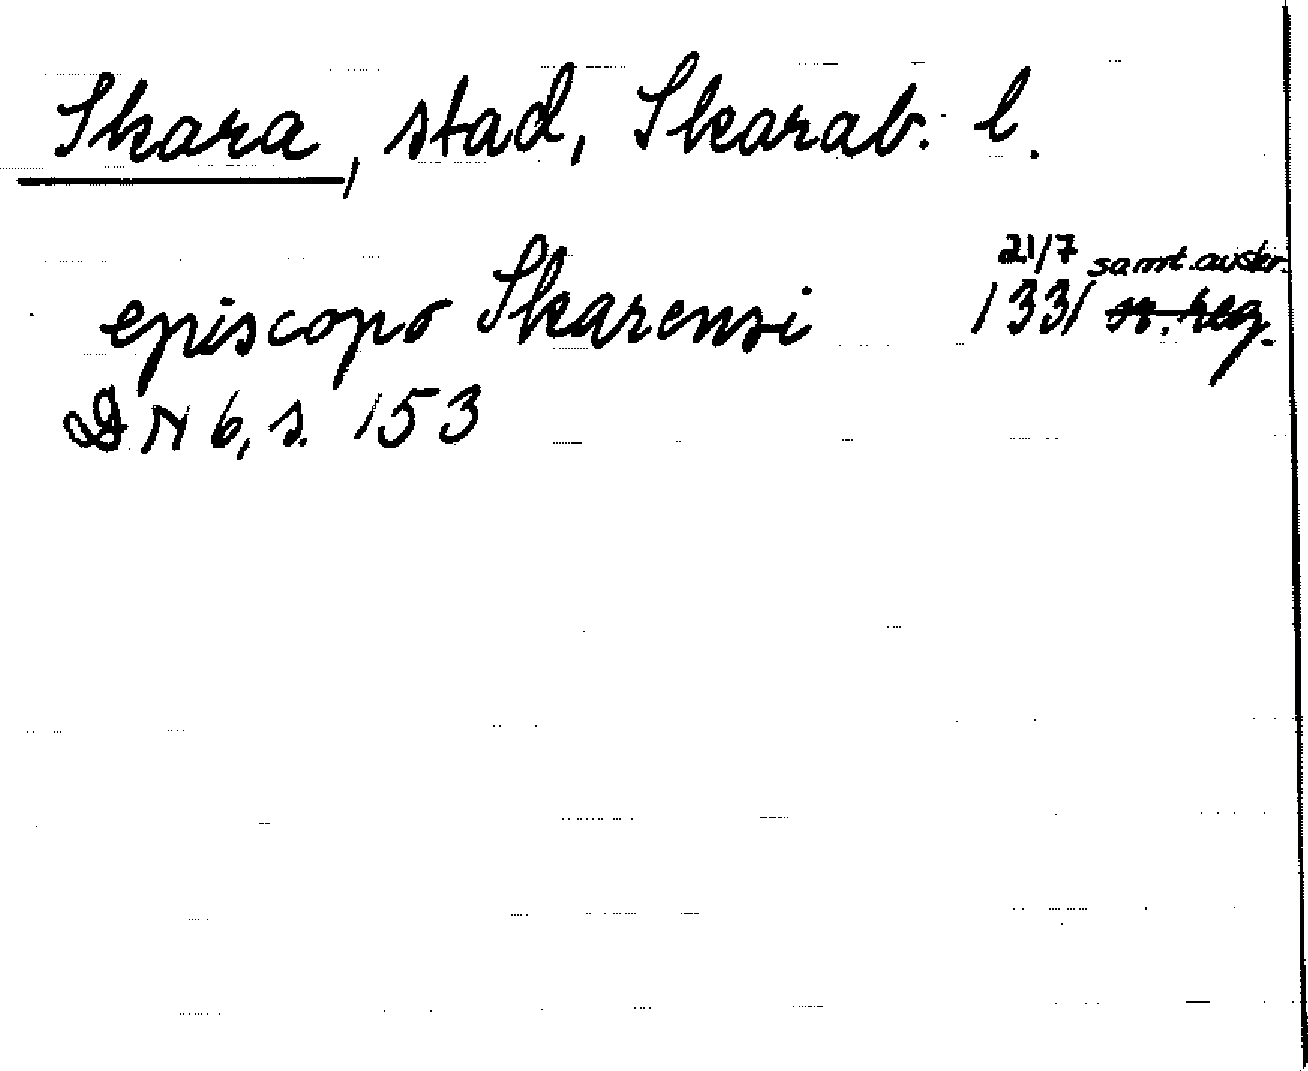 Skara, stad, Skarab. l.
21/7 samt. avskr.
episcopo Skarensi 1331 n. reg.
DN 6, s. 153